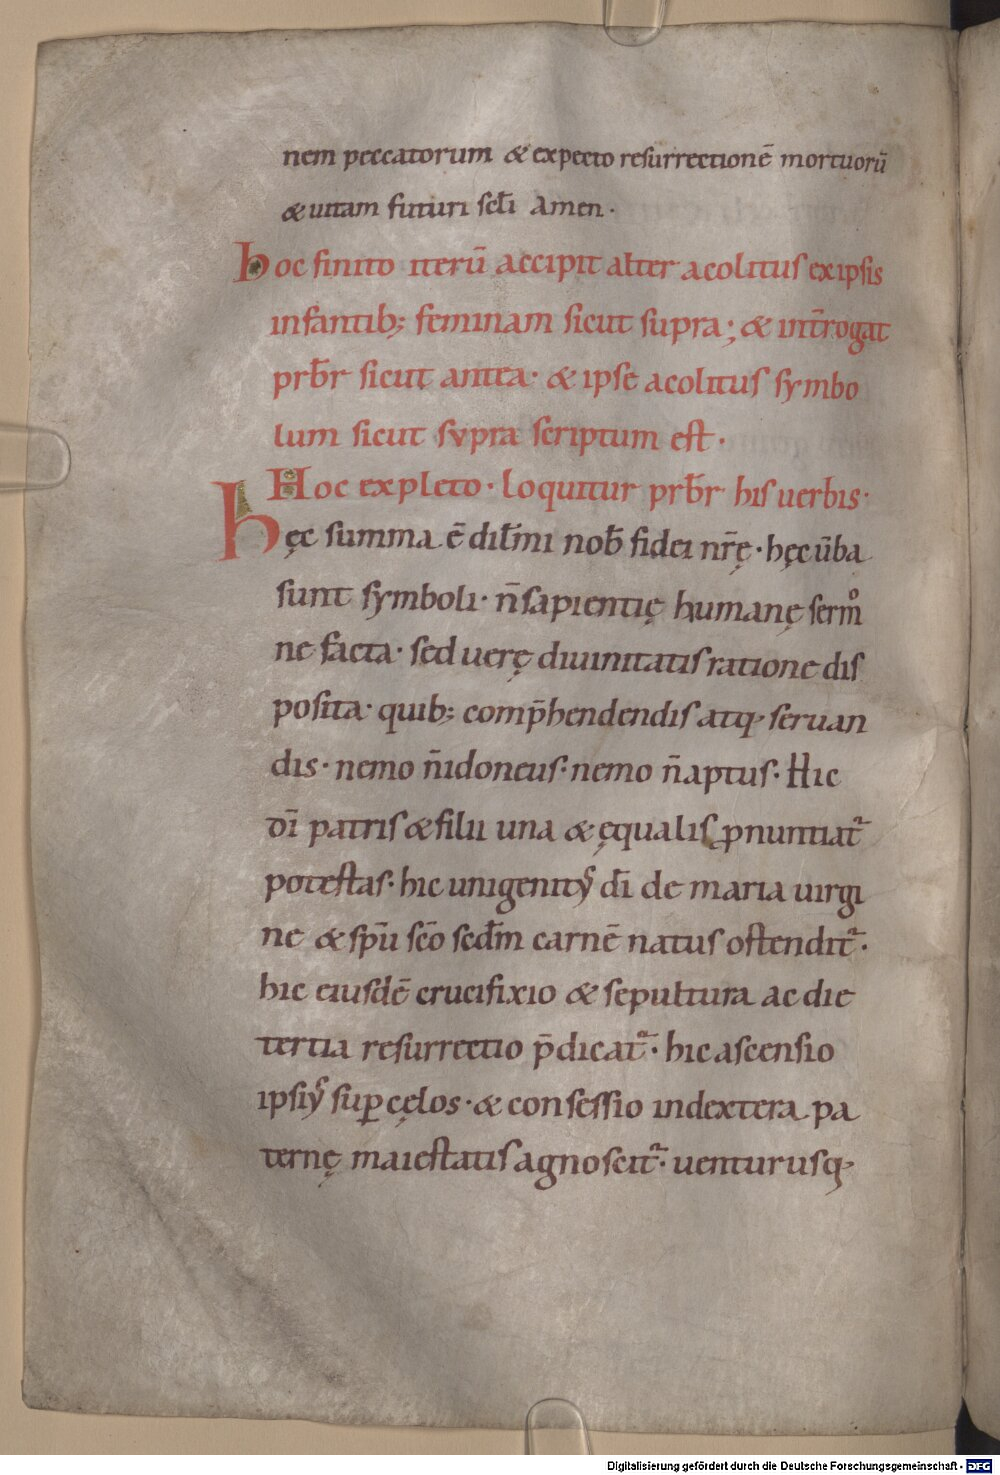 nem peccatorum & expecto resurrectionē mortuorū
& uitam futuri sc̄li Amen·
hoc finito iterū accipit alter acolitus ex ipsis
infantib; feminam sicut supra; & int̄rogat
prb̄r sicut antea· & ipse acolitus symbo
lum sicut supra scriptum est·
Hoc expleto· loquitur prb̄r his uerbis·
hęc summa ē dil̄mi nob̄ fidei nr̄ę· hęc ūba
sunt symboli· n̄ sapientię humanę sermo
ne facta· sed uerę diuinitatis ratione dis
posita· quib; comp̄hendendis atq· seruan
dis· nemo n̄ idoneus· nemo n̄ aptus· Hic
dī patris & filii una & ęqualis ꝓnuntiat᷑
potestas· hic unigenitꝰ dī de maria uirgi
ne & spū sc̄o secd̄m carnē natus ostendit᷑·
hic eiusdē crucifixio & sepultura ac die
tertia resurrectio p̄dicat᷑· hic ascensio
ipsiꝰ suꝑ cęlos· & consessio in dextera pa
ternę maiestatis agnoscit᷑· uenturusq·
Digitalisierung gefördert durch die Deutsche Forschungsgemeinschaft - DFG